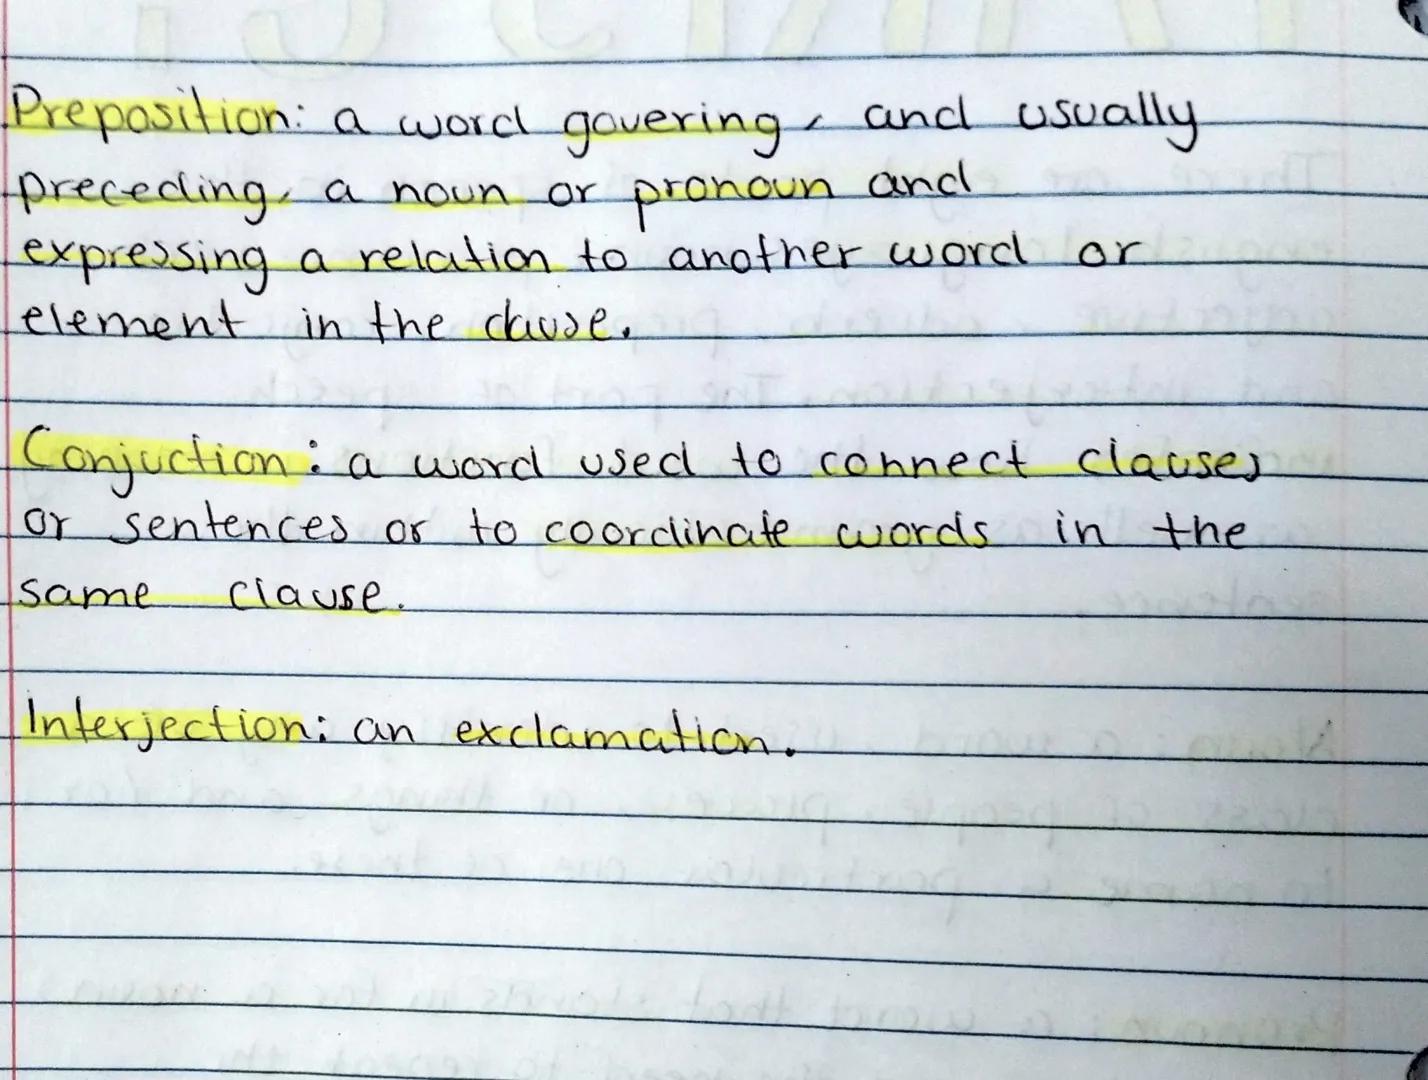 Preposition: a word govering, and usually
preceding, a noun or pronoun and
expressing a relation to another word or
element in the clause.
Conjuction: a word used to connect clauses
or sentences or to coordinate words in the
same clause.
Interjection: an exclamation.